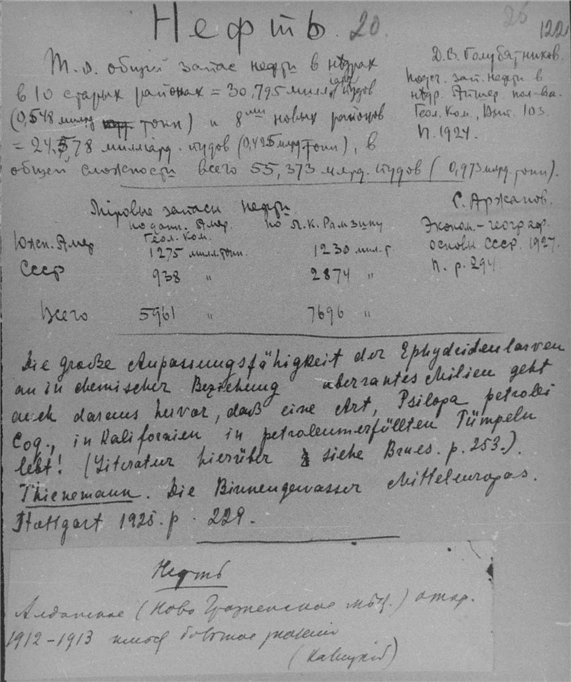 Нефть. 20. 26 122
Т. о. общий запас нефти в недрах
в 10 старых районах = 30,795 милл. пудов
(0,548 милрд тонн) и 8 новых районов
= 24,578 миллиард. пудов (0,425 млрд тонн), в
общей сложности всего 55,373 млрд. пудов (0,973 млрд. тонн).
Д. В. Голубятников.
Подсч. зап. нефти в
недр.
Геол. Ком., 103
П. 1924.
Мировые запасы нефти
по данн. Амер. Геол. Ком. по Л. К. Рамзину
Южн. Амер 1275 милл. тонн 1230 мил. т
СССР 938 " 2874 "
Всего 5961 " 7696 "
С. Аржанов.
Эконом.-географ.
основы СССР. 1927.
П. р. 294
Die große Anpassungsfähigkeit der Ephydridenlarven
an in chemischer Beziehung aberrantes Milieu geht
auch daraus hervor, daß eine Art, Psilopa petrolei
Coq., in Kalifornien in petroleumerfüllten Tümpeln
lebt! (Literatur hierüber siehe Brues. p. 253.).
Thienemann. Die Binnengewässer Mitteleuropas.
Stuttgart 1925. p. 229.
Нефть
(Ново Грозненское
1912-1913 большое